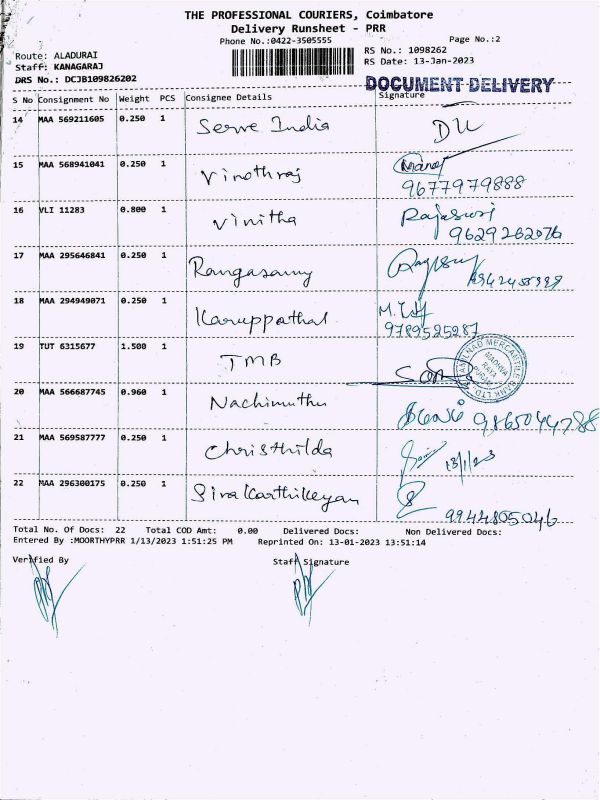 THE PROFESSIONAL COURIERS, Coimbatore
Delivery Runsheet - PRR
Phone No.:0422-3505555
Page No.:2
Route: ALADURAI
RS No.: 1098262
Staff: KANAGARAJ
RS Date: 13-Jan-2023
DRS No.: DCJB109826202
DOCUMENT DELIVERY
S No Consignment No Weight PCS Consignee Details Signature
14 MAA 569211605 0.250 1 Serve India DU
15 MAA 568941041 0.250 1 Vinothraj Manoj
9677979888
16 VLI 11283 0.800 1 Vinitha Rajaswri
9629262076
17 MAA 295646841 0.250 1 Rangasamy
18 MAA 294949071 0.250 1 Karuppathal
9789525287
19 TUT 6315677 1.500 1 TMB
TAMILNAD MERCANTILE BANK LTD.
20 MAA 566687745 0.960 1 Nachimuthu
21 MAA 569587777 0.250 1 Christhilda 13/1/23
22 MAA 296300175 0.250 1 Sivakarthikeyan
9944805046
Total No. Of Docs: 22 Total COD Amt: 0.00 Delivered Docs: Non Delivered Docs:
Entered By :MOORTHYPRR 1/13/2023 1:51:25 PM Reprinted On: 13-01-2023 13:51:14
Verified By Staff Signature